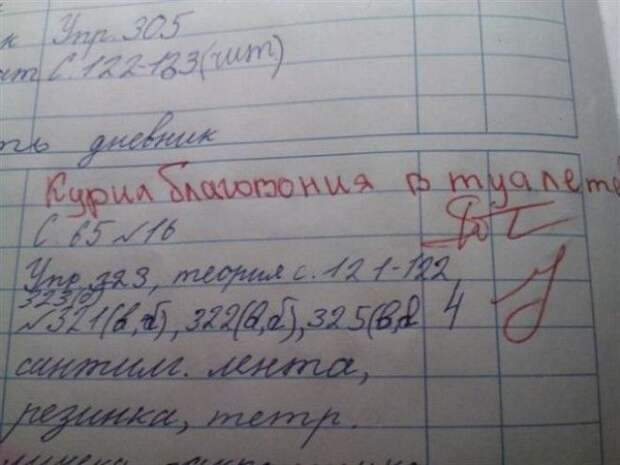 к Упр. 305
ит С. 122-123 (чит.)
ть дневник
Курил благовония в туалете
С 65 №16
Упр. 323, теория с. 121-122
323(б)
№321(в,б), 322(в,б), 325(в,б 4
сантим. лента,
резинка, тетр.